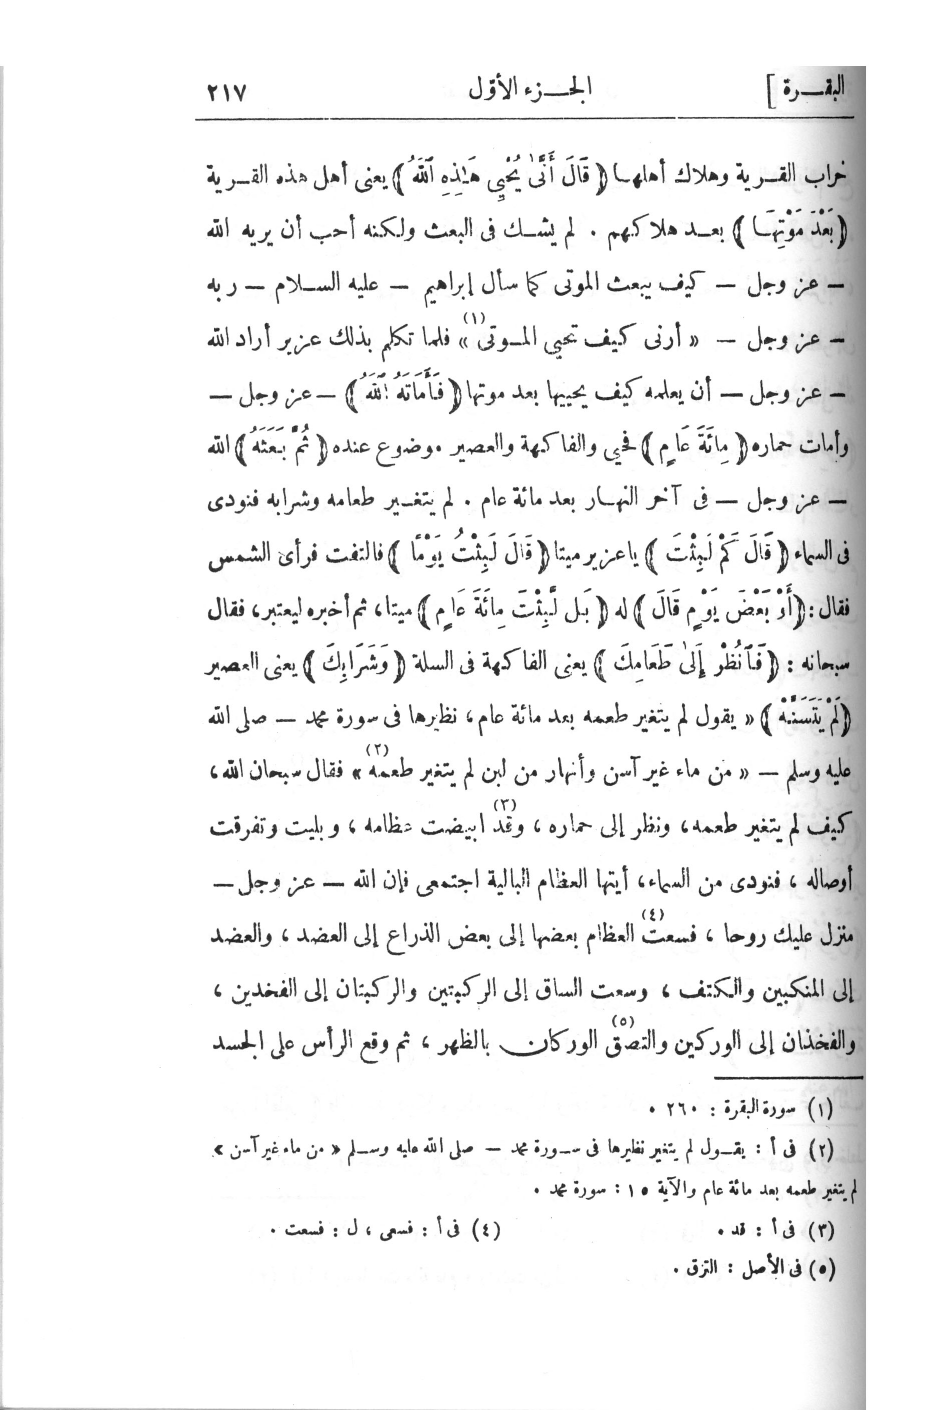 البقـــرة ]
الجـــزء الأوّل
٢١٧
خراب القـرية وهلاك أهلهـا ﴿ قَالَ أَنَّىٰ يُحْيِي هَٰذِهِ ٱللَّهُ ﴾ يعنى أهل هذه القـرية
﴿ بَعْدَ مَوْتِهَا ﴾ بعـد هلاكهم . لم يشـك فى البعث ولكنه أحب أن يريه الله
– عز وجل – كيف يبعث الموتى كما سأل إبراهيم – عليه السـلام – ربه
– عز وجل – « أرنى كيف تحيي المـوتى (١) » فلما تكلم بذلك عزير أراد الله
– عز وجل – أن يعلمه كيف يحييها بعد موتها ﴿ فَأَمَاتَهُ ٱللَّهُ ﴾ – عز وجل –
وأمات حماره ﴿ مِائَةَ عَامٍ ﴾ فحيي والفاكهة والعصير موضوع عنده ﴿ ثُمَّ بَعَثَهُ ﴾ الله
– عز وجل – فى آخر النهـار بعد مائة عام . لم يتغـير طعامه وشرابه فنودى
فى السماء ﴿ قَالَ كَمْ لَبِثْتَ ﴾ يا عزير ميتا ﴿ قَالَ لَبِثْتُ يَوْمًا ﴾ فالتفت فرأى الشمس
فقال : ﴿ أَوْ بَعْضَ يَوْمٍ قَالَ ﴾ له ﴿ بَل لَّبِثْتَ مِائَةَ عَامٍ ﴾ ميتا ، ثم أخبره ليعتبر ، فقال
سبحانه : ﴿ فَٱنْظُرْ إِلَىٰ طَعَامِكَ ﴾ يعنى الفاكهة فى السلة ﴿ وَشَرَابِكَ ﴾ يعنى العصير
﴿ لَمْ يَتَسَنَّهْ ﴾ « يقول لم يتغير طعمه بعد مائة عام ، نظيرها فى سورة محمد – صلى الله
عليه وسلم – « من ماء غير آسن وأنهار من لبن لم يتغير طعمه (٢) » فقال سبحان الله ،
كيف لم يتغير طعمه ، ونظر إلى حماره ، وقد (٣) ابيضت عظامه ، وبليت وتفرقت
أوصاله ، فنودى من السماء ، أيتها العظام البالية اجتمعى فإن الله – عز وجل –
منزل عليك روحا ، فسعت (٤) العظام بعضها إلى بعض الذراع إلى العضد ، والعضد
إلى المنكبين والكتف ، وسعت الساق إلى الركبتين والركبتان إلى الفخدين ،
والفخذان إلى الوركين والتصق (٥) الوركان بالظهر ، ثم وقع الرأس على الجسد
(١) سورة البقرة : ٢٦٠ .
(٢) فى أ : يقـول لم يتغير نظيرها فى سـورة محمد – صلى الله عليه وسـلم « من ماء غير آسن » .
لم يتغير طعمه بعد مائة عام والآية ١٥ : سورة محمد .
(٣) فى أ : قد . (٤) فى أ : فسعى ، ل : فسعت .
(٥) فى الأصل : التزق .